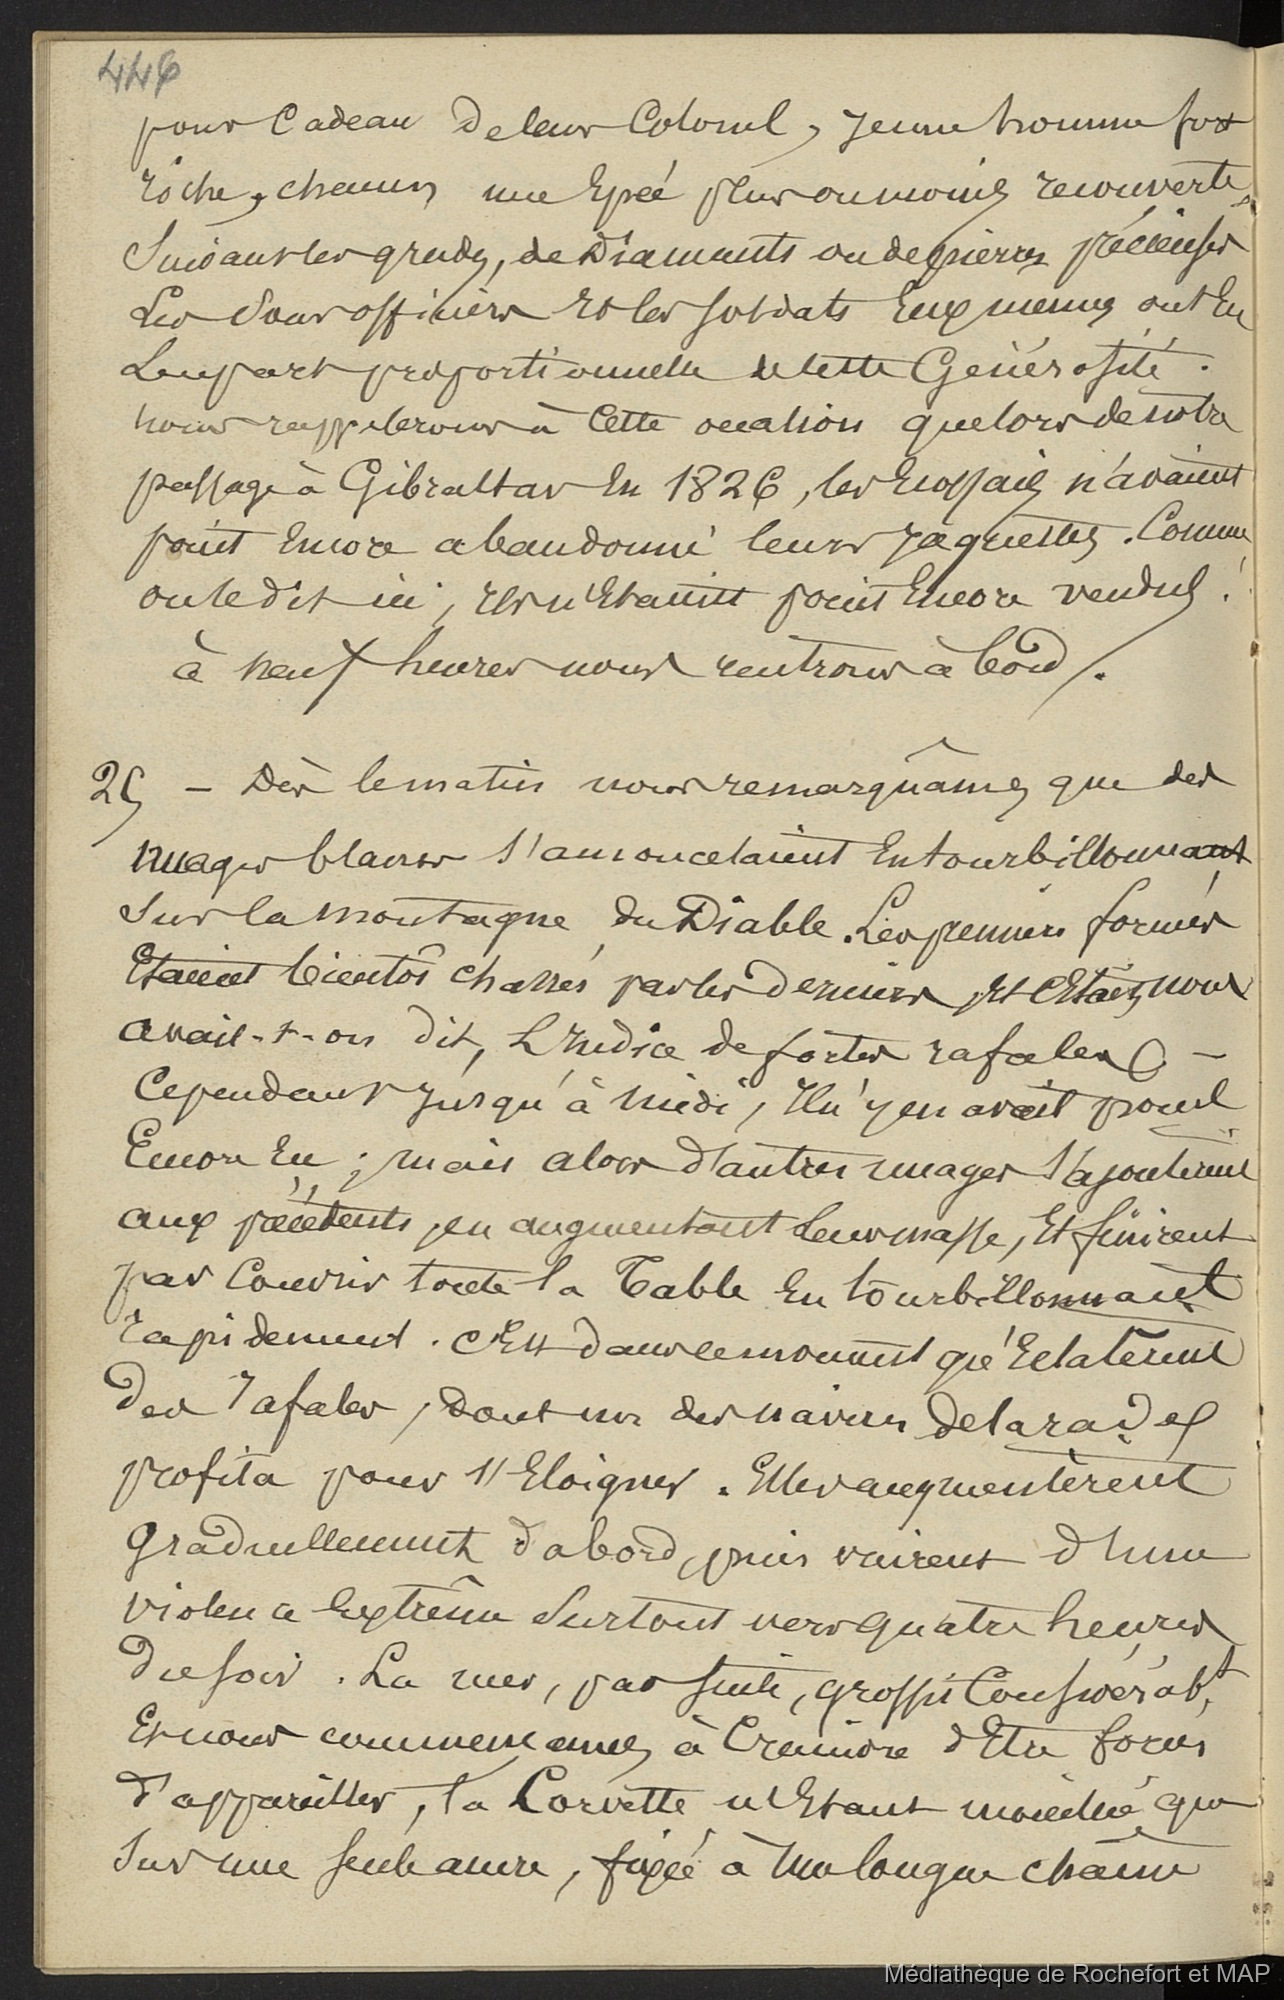 446
pour Cadeau de leur Colonel, jeune homme fort
riche, chacun une Epée plus ou moins recouverte,
Suivant les grades, de Diamants ou de pierres précieuses
Les Sous officiers et les soldats Eux mêmes ont Eu
Leur part proportionnelle de cette Générosité.
nous rappelerons à Cette occasion que lors de notre
passage à Gibraltar En 1826, les Ecossais n'avaient
point Encore abandonné leurs jaquettes. Comme
on le dit ici, ils n'Etaient point Encore vendus !
à neuf heures nous rentrons à bord.
25 — Dès le matin nous remarquâmes que des
nuages blancs s'amoncelaient En tourbillonnant
Sur la montagne du Diable. Les premiers formés
Etaient bientôt chassés par les Derniers, et c'Etait, nous
avait-t-on dit, L'Indice de fortes rafales. —
Cependant jusqu'à midi, Il n'y en avait point
Encore Eu ; mais alors d'autres nuages s'ajoutèrent
aux précédents, en augmentant Leur masse, Et finirent
par Couvrir toute la Table En tourbillonnant
rapidement. c'Est dans ce moment qu'Eclatèrent
Des rafales, Dont un des navires de la rade
profita pour s'Eloigner. Elles augmentèrent
Graduellement d'abord, puis vinrent d'une
violence Extrême Surtout vers quatre heures
Du soir. La mer, par suite, grossit Considérabt,
Et nous commençames à Craindre d'Etre forcés
D'appareiller, la Corvette n'Etant mouillée que
Sur une seule ancre, fixée à une longue chaîne
Médiathèque de Rochefort et MAP